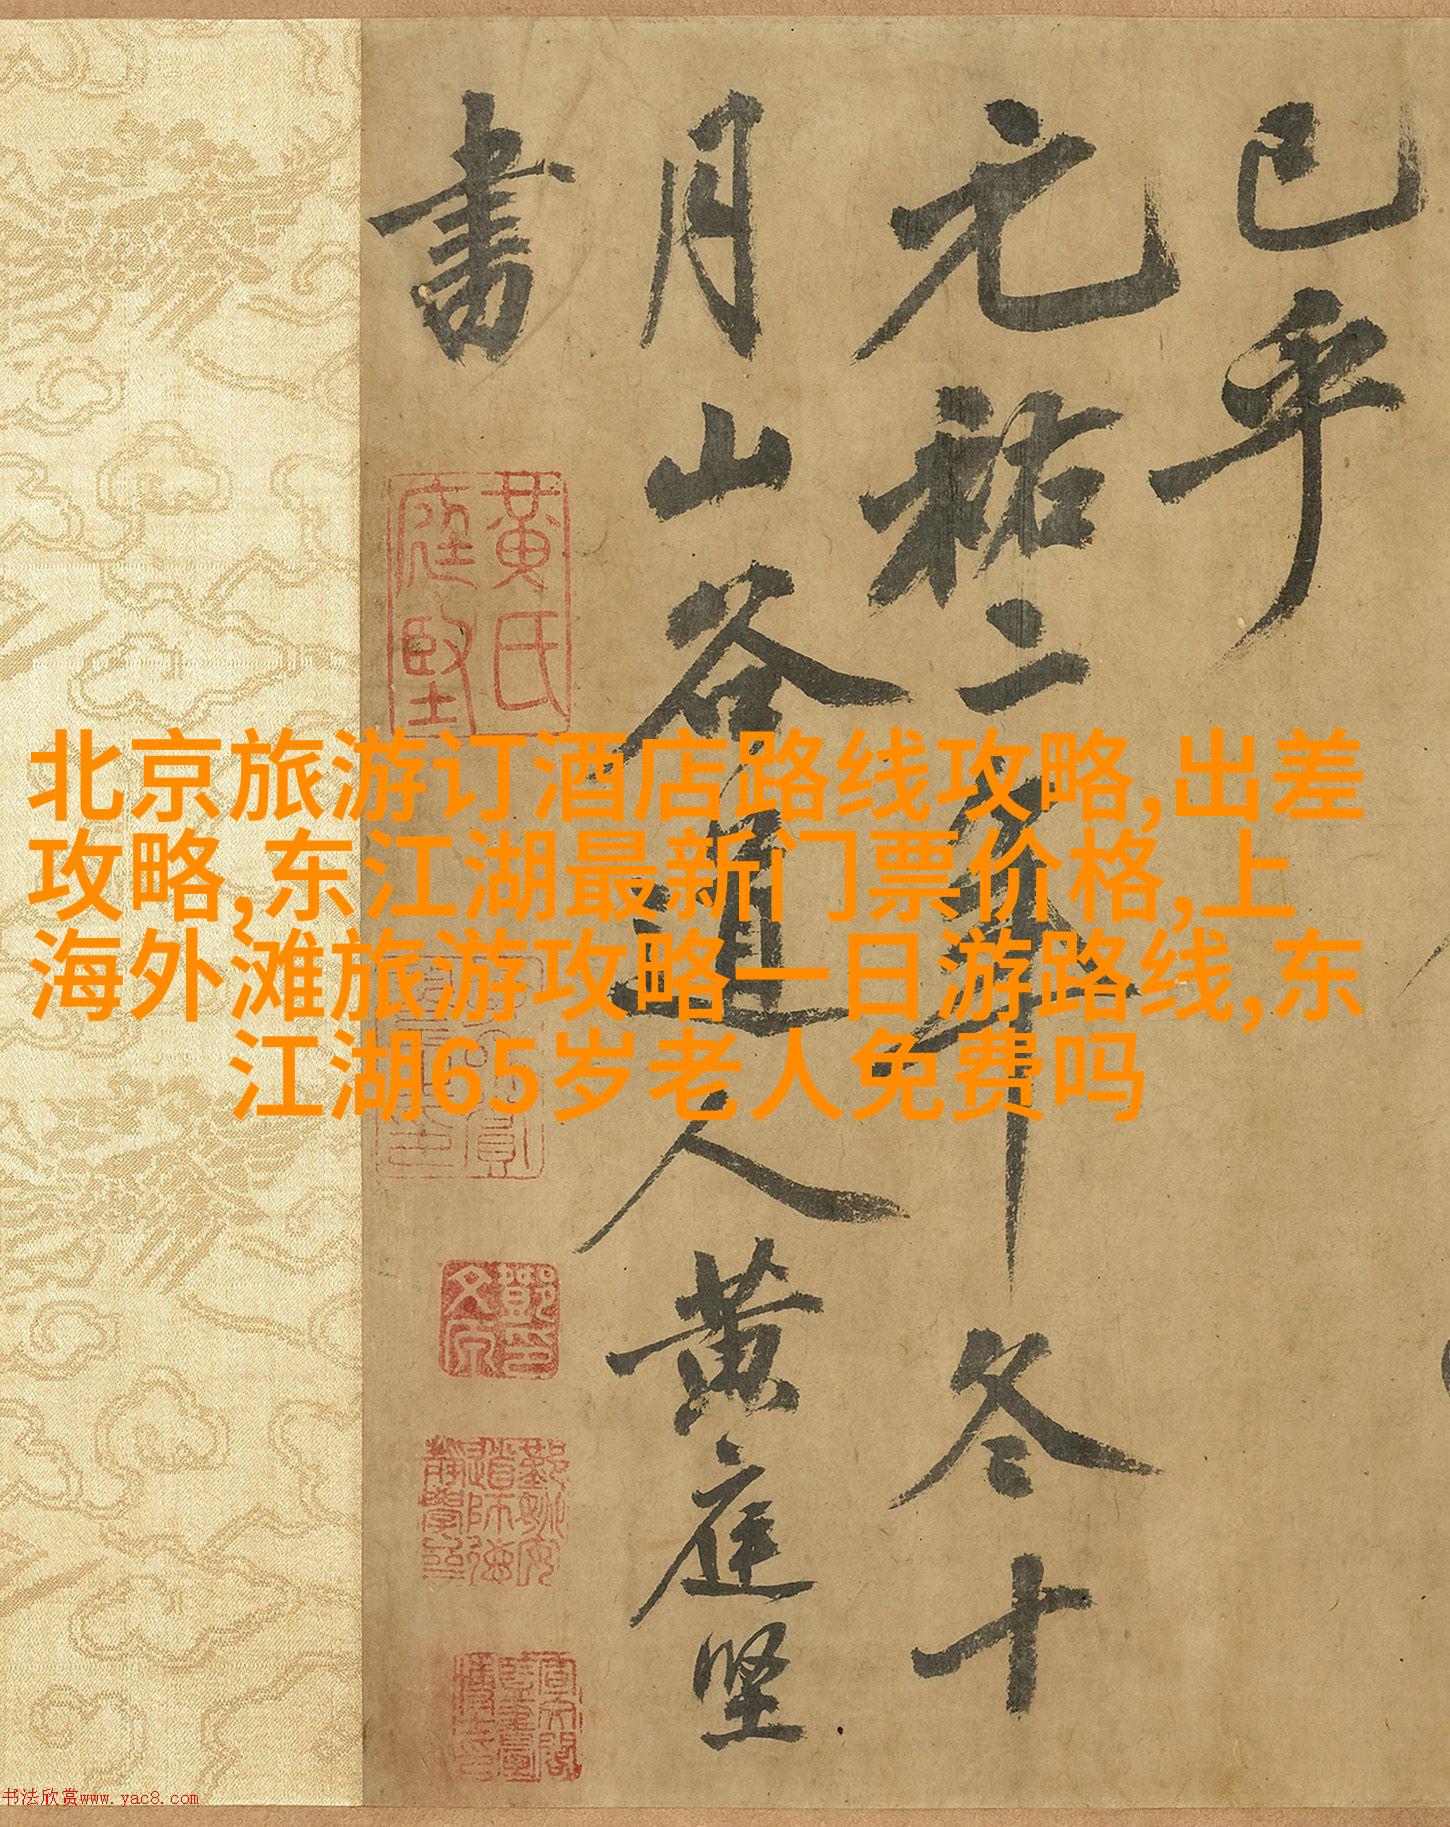 已乎
元祐二年冬十
月山谷道人黄庭坚
書
黄氏
庭堅
北京旅游订酒店路线攻略,出差
攻略,东江湖最新门票价格,上
海外滩旅游攻略一日游路线,东
江湖65岁老人免费吗
书法欣赏www.yac8.com